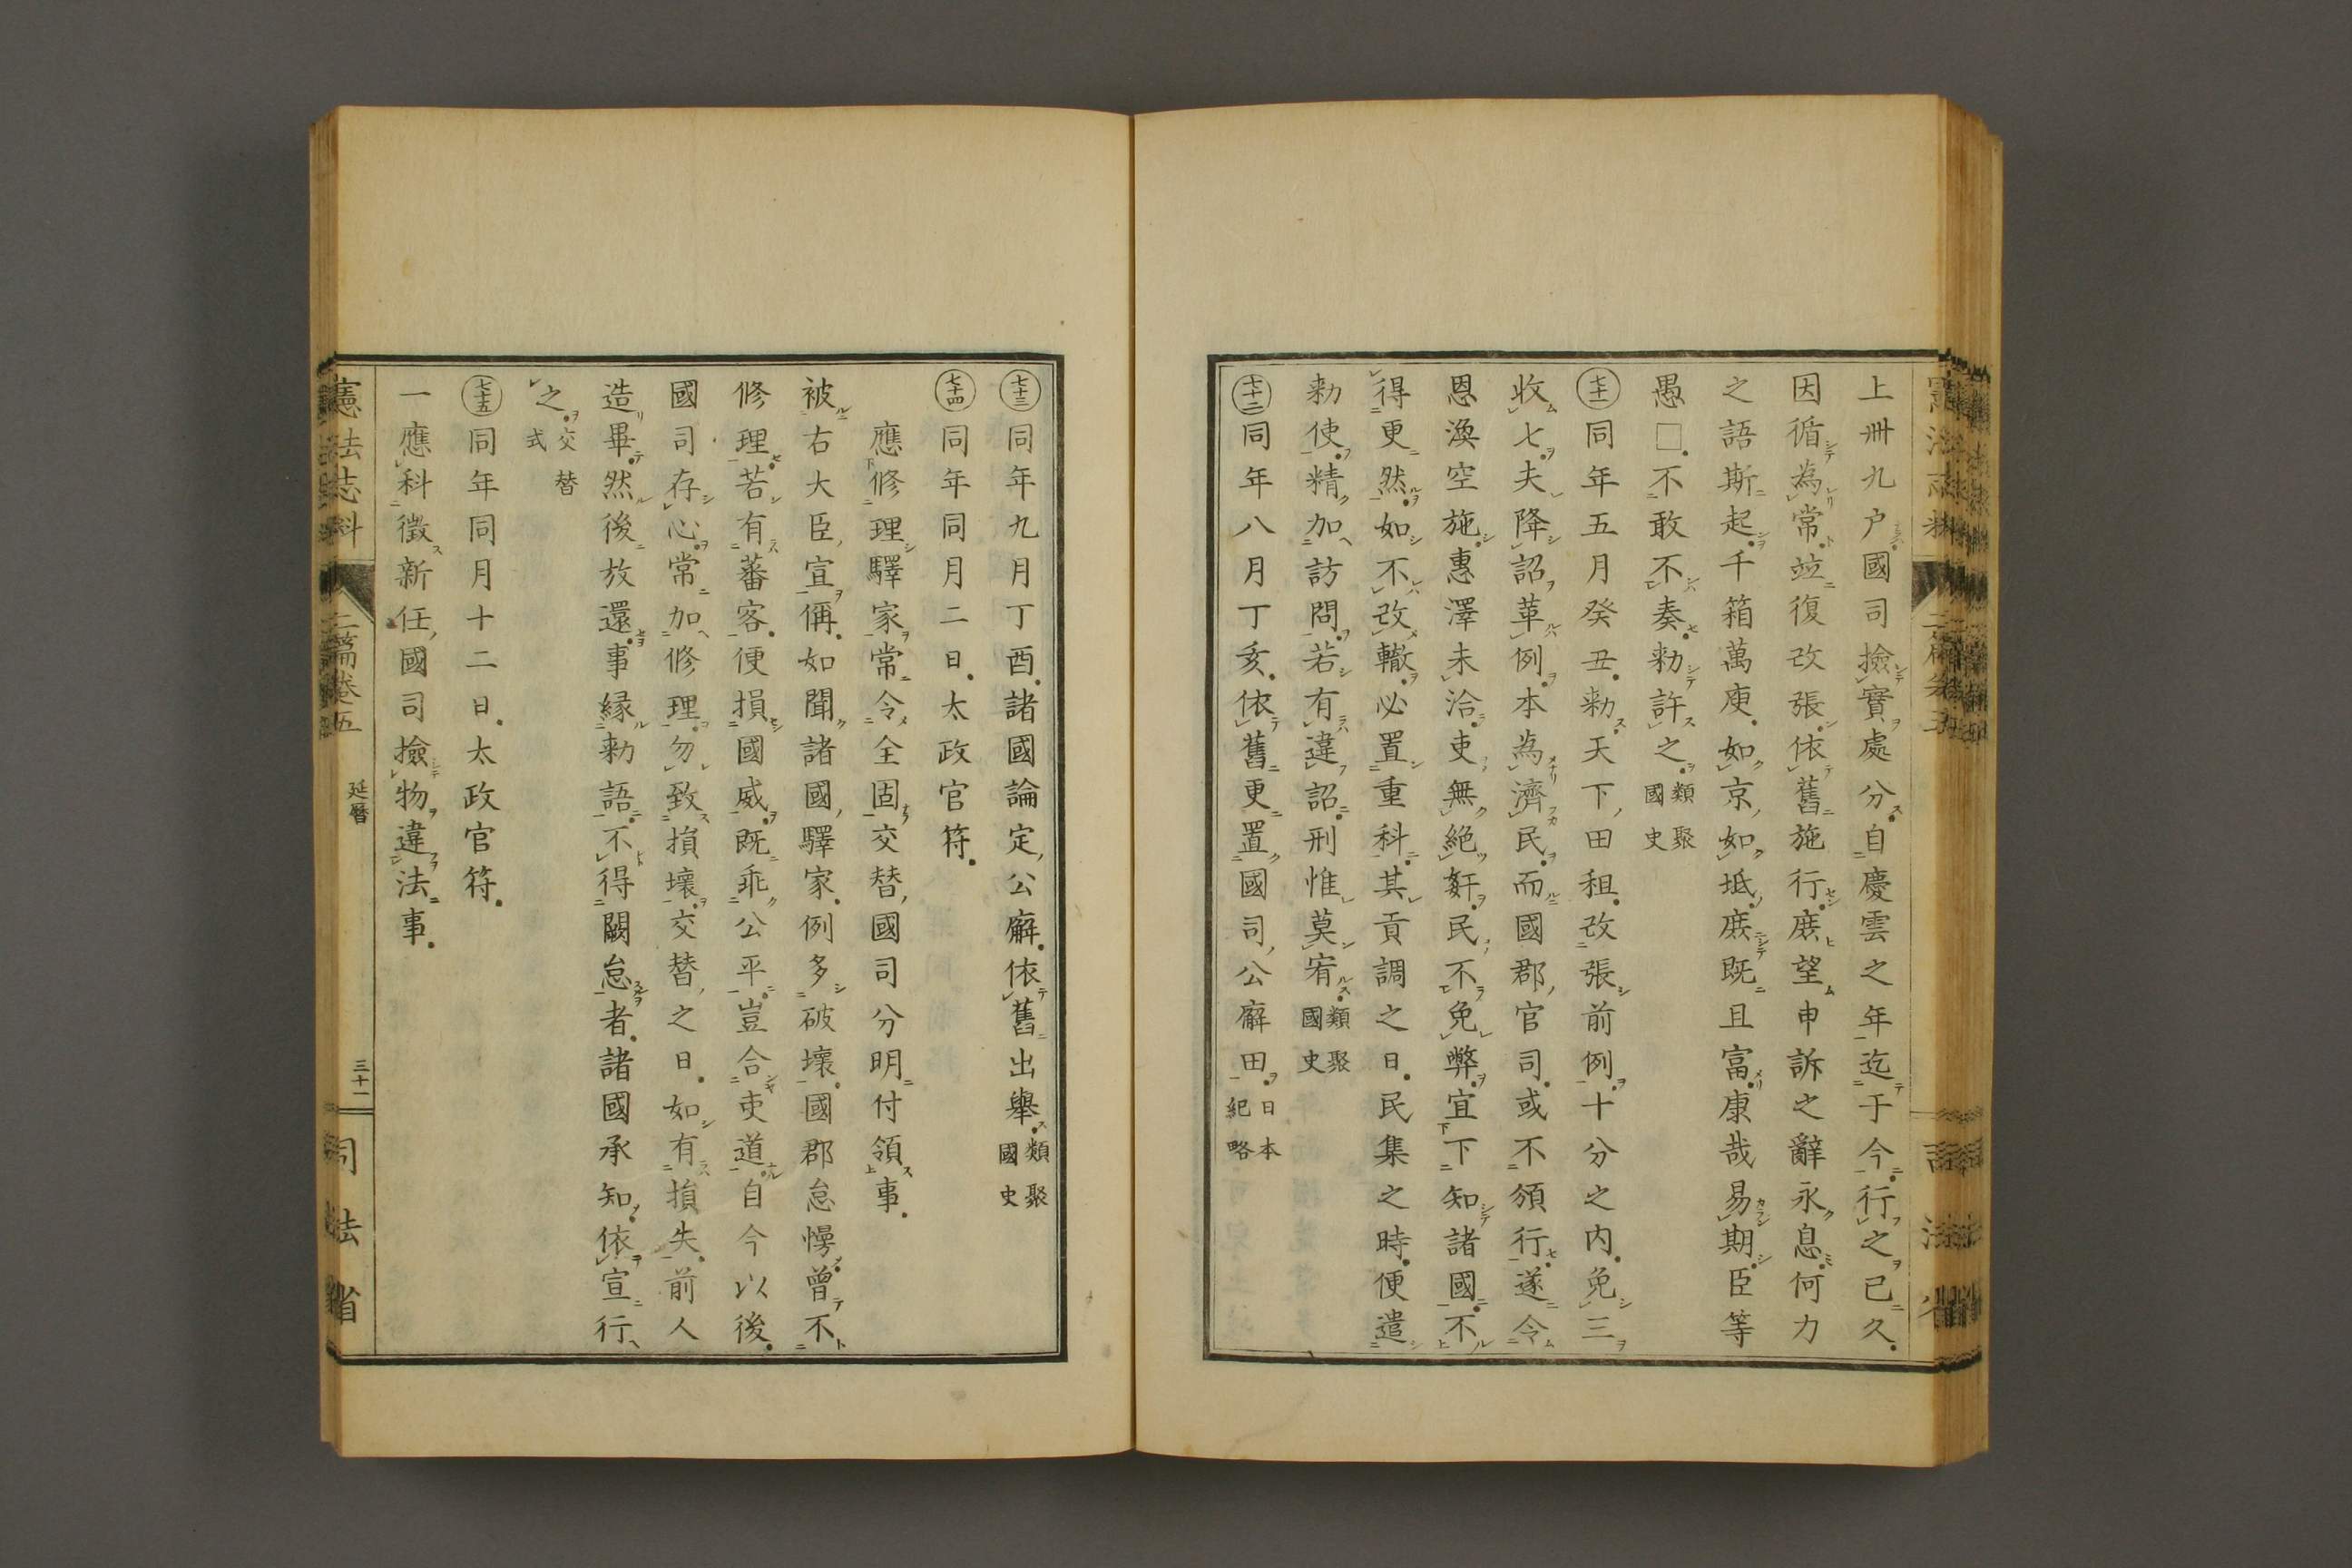 上卌九户國司撿實處分自慶雲之年迄于今行之已久
因循為常竝復改張依舊施行庻望申訴之辭永息何力
之語斯起千箱萬庾如京如坻庻既且富康哉易期臣等
愚□不敢不奏勑許之類聚國史
七十一同年五月癸丑勑天下田租改張前例十分之内免三
收七夫降詔革例本為濟民而國郡官司或不頒行遂令
恩渙空施惠澤未洽吏無絕姧民不免弊宜下知諸國不
得更然如不改轍必置重科其貢調之日民集之時便遣
勑使精加訪問若有違詔刑惟莫宥類聚國史
七十二同年八月丁亥依舊更置國司公廨田日本紀略
七十三同年九月丁酉諸國論定公廨依舊出舉類聚國史
七十四同年同月二日太政官符
應修理驛家常令全固交替國司分明付領事
被右大臣宣偁如聞諸國驛家例多破壞國郡怠慢曾不
修理若有蕃客便損國威既乖公平豈合吏道自今以後
國司存心常加修理勿致損壞交替之日如有損失前人
造畢然後放還事緣勑語不得闕怠者諸國承知依宣行
之交替式
七十五同年同月十二日太政官符
一應科徵新任國司撿物違法事
憲法志料 二篇卷五 延曆 三十一 司法省